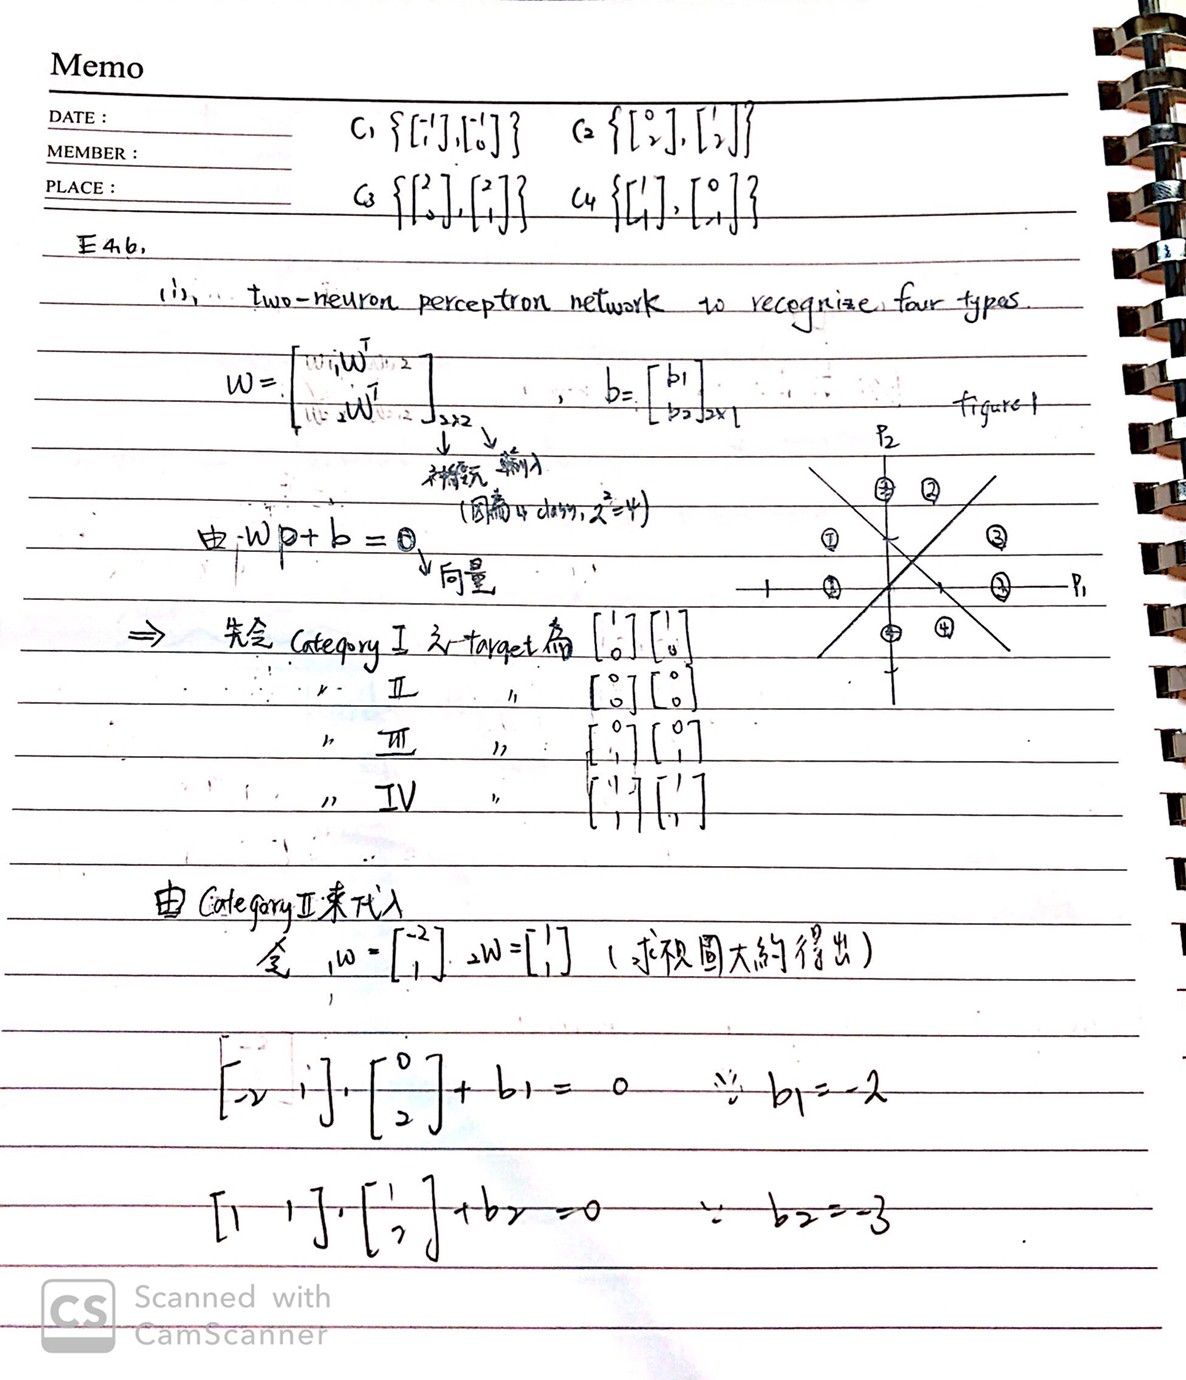 Memo
DATE :
MEMBER :
PLACE :
C1 {[-1 1],[-1 0]} C2 {[0 2],[1 2]}
C3 {[2 0],[2 1]} C4 {[1 -1],[0 -1]}
E4.6.
(i), two-neuron perceptron network to recognize four types.
W = [1WT 2WT]2×2 , b = [b1 b2]2×1
figure 1
神經元 輸入
(因為 4 class, 2^2=4)
由 Wp + b = 0
向量
P2
② ② ① ③ P1 ④
⇒ 先令 Category I 之 target 為 [1 0] [1 0]
〃 II 〃 [0 0] [0 0]
〃 III 〃 [0 1] [0 1]
〃 IV 〃 [1 1] [1 1]
由 Category II 來代入
令 1W = [-2 1]. 2W = [1 1] (視圖大約得出)
[-2 1]·[0 2] + b1 = 0 ∵ b1 = -2
[1 1]·[1 2] + b2 = 0 ∵ b2 = -3
CS Scanned with
CamScanner